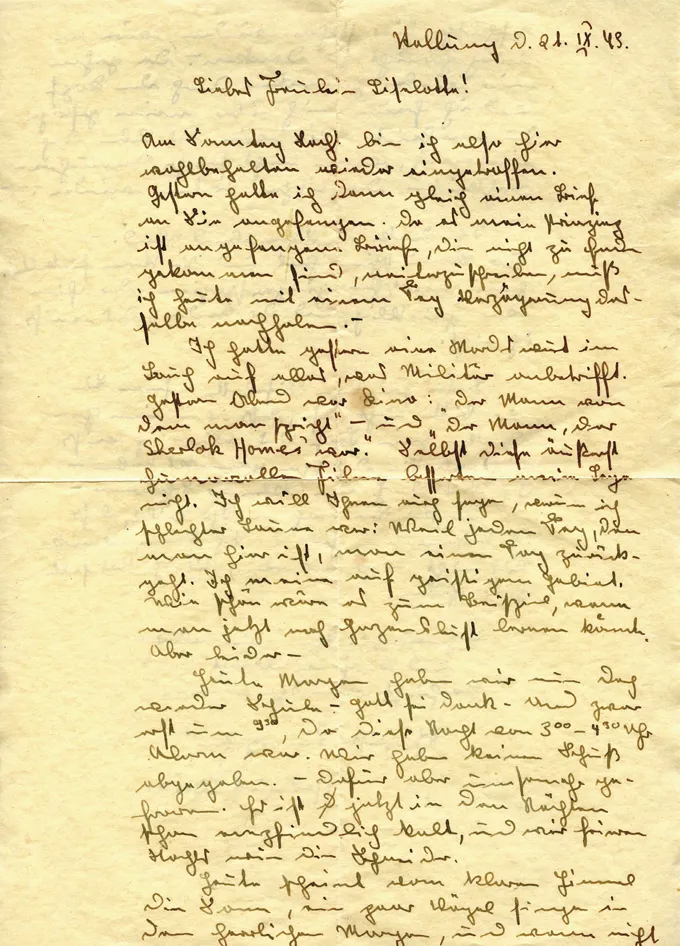 Stallung d. 21. IX. 43.
Liebes Fräulein Liselotte!
Am Sonntag Nacht bin ich also hier
wohlbehalten wieder eingetroffen.
Gestern hatte ich dann gleich einen Brief
an Sie angefangen. Da es mein Prinzip
ist angefangene Briefe, die nicht zu Ende
gekommen sind, weiterzuschreiben, muß
ich heute mit einem Tag Verzögerung das-
selbe nachholen. –
Ich hatte gestern eine Mordswut im
Bauch auf alles, was Militär anbetrifft.
Gestern Abend war Kino: "Der Mann von
dem man spricht" – und "Der Mann, der
Sherlok Homes war." Selbst diese äußerst
humorvollen Filme besserten meine Lage
nicht. Ich will Ihnen auch sagen, warum ich
schlechter Laune war: Weil jeden Tag, den
man hier ist, man einen Tag zurück-
geht. Ich meine auf geistigem Gebiet.
Wie schön wäre es zum Beispiel, wenn
man jetzt noch lernen könnte.
Aber leider –
Heute Morgen haben wir nun doch
wieder Schule – Gott sei Dank – Und zwar
erst um 9³⁰, da diese Nacht von 3⁰⁰ – 4³⁰ Uhr
Alarm war. Wir haben keinen Schuß
abgegeben. – Dafür aber umsomehr ge-
froren. Es ist jetzt in den Nächten
schon empfindlich kalt, und wir frieren
Nachts wie die Schneider.
Heute scheint vom klaren Himmel
die Sonne, ein paar Vögel singen in
den herrlichen Morgen, und wenn nicht